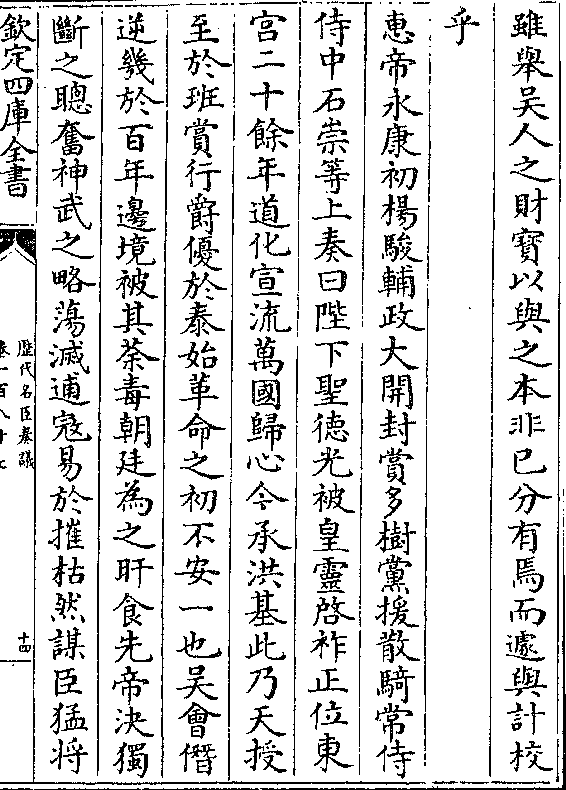 雖舉吴人之財寶以與之本非已分有焉而遽與計校
乎
惠帝永康初楊駿輔政大開封賞多樹黨援散騎常侍
侍中石崇等上奏曰陛下聖德光被皇靈啓祚正位東
宫二十餘年道化宣流萬國歸心今承洪基此乃天授
至於班賞行爵優於泰始革命之初不安一也吴會僭
逆幾於百年邊境被其荼毒朝廷為之旰食先帝決獨
斷之聰奮神武之略蕩滅逋寇易於摧枯然謀臣猛將
欽定四庫全書
歷代名臣奏議
卷一百八十七
十四